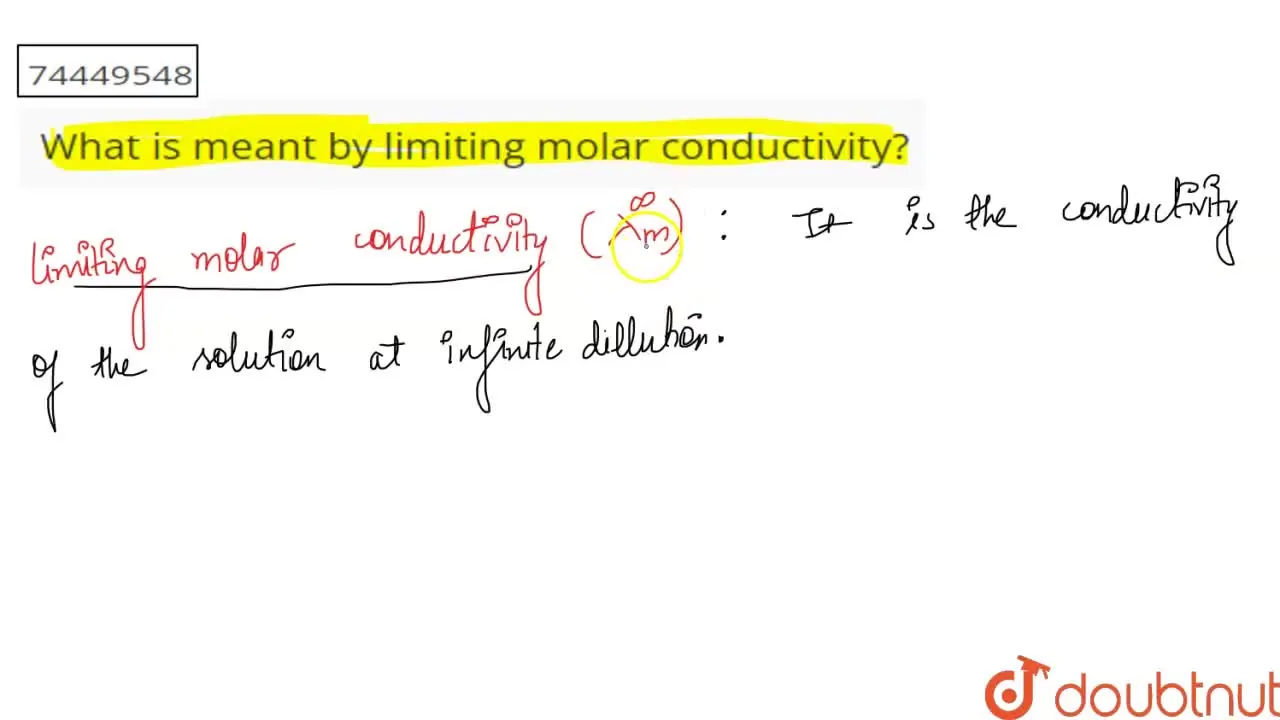 74449548
What is meant by limiting molar conductivity?
limiting molar conductivity (λ∞m) : It is the conductivity
of the solution at infinite dillution.
doubtnut